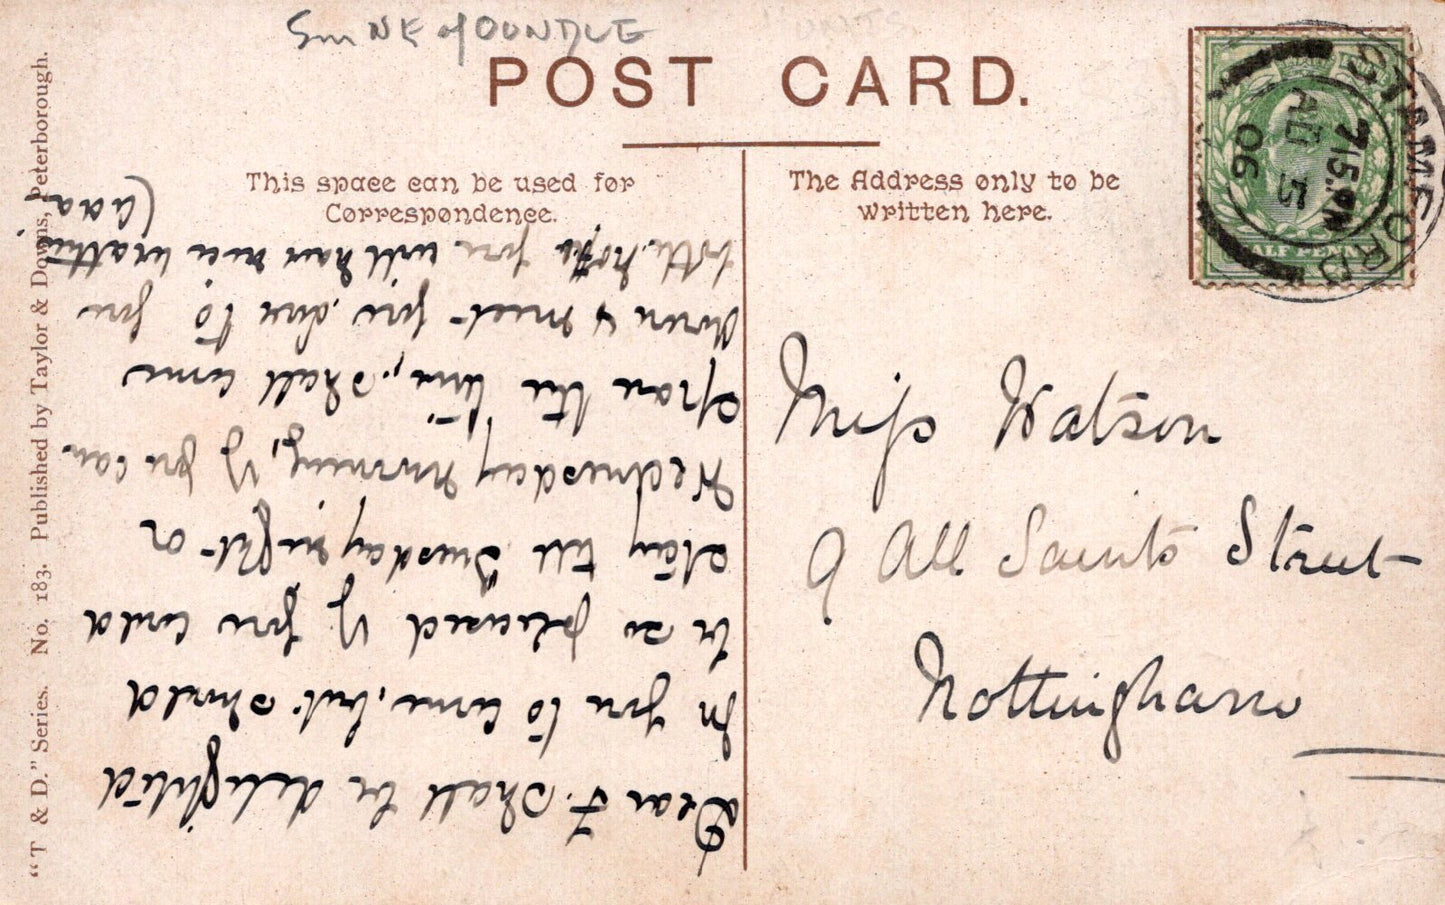 5m NE of OUNDLE
POST CARD.
This space can be used for
Correspondence.
The Address only to be
written here.
STAMFORD
7 15 PM
AU 5
06
HALF PENNY
Miss Watson
9 All Saints Street
Nottingham
Dear F. Shall be delighted
for you to come, but should
be so pleased if you could
stay till Tuesday night or
Wednesday morning, if you can
spare the time, shall come
down & meet you, love to you
both, hope you will have nice weather
"T & D." Series. No. 183. Published by Taylor & Downs, Peterborough.